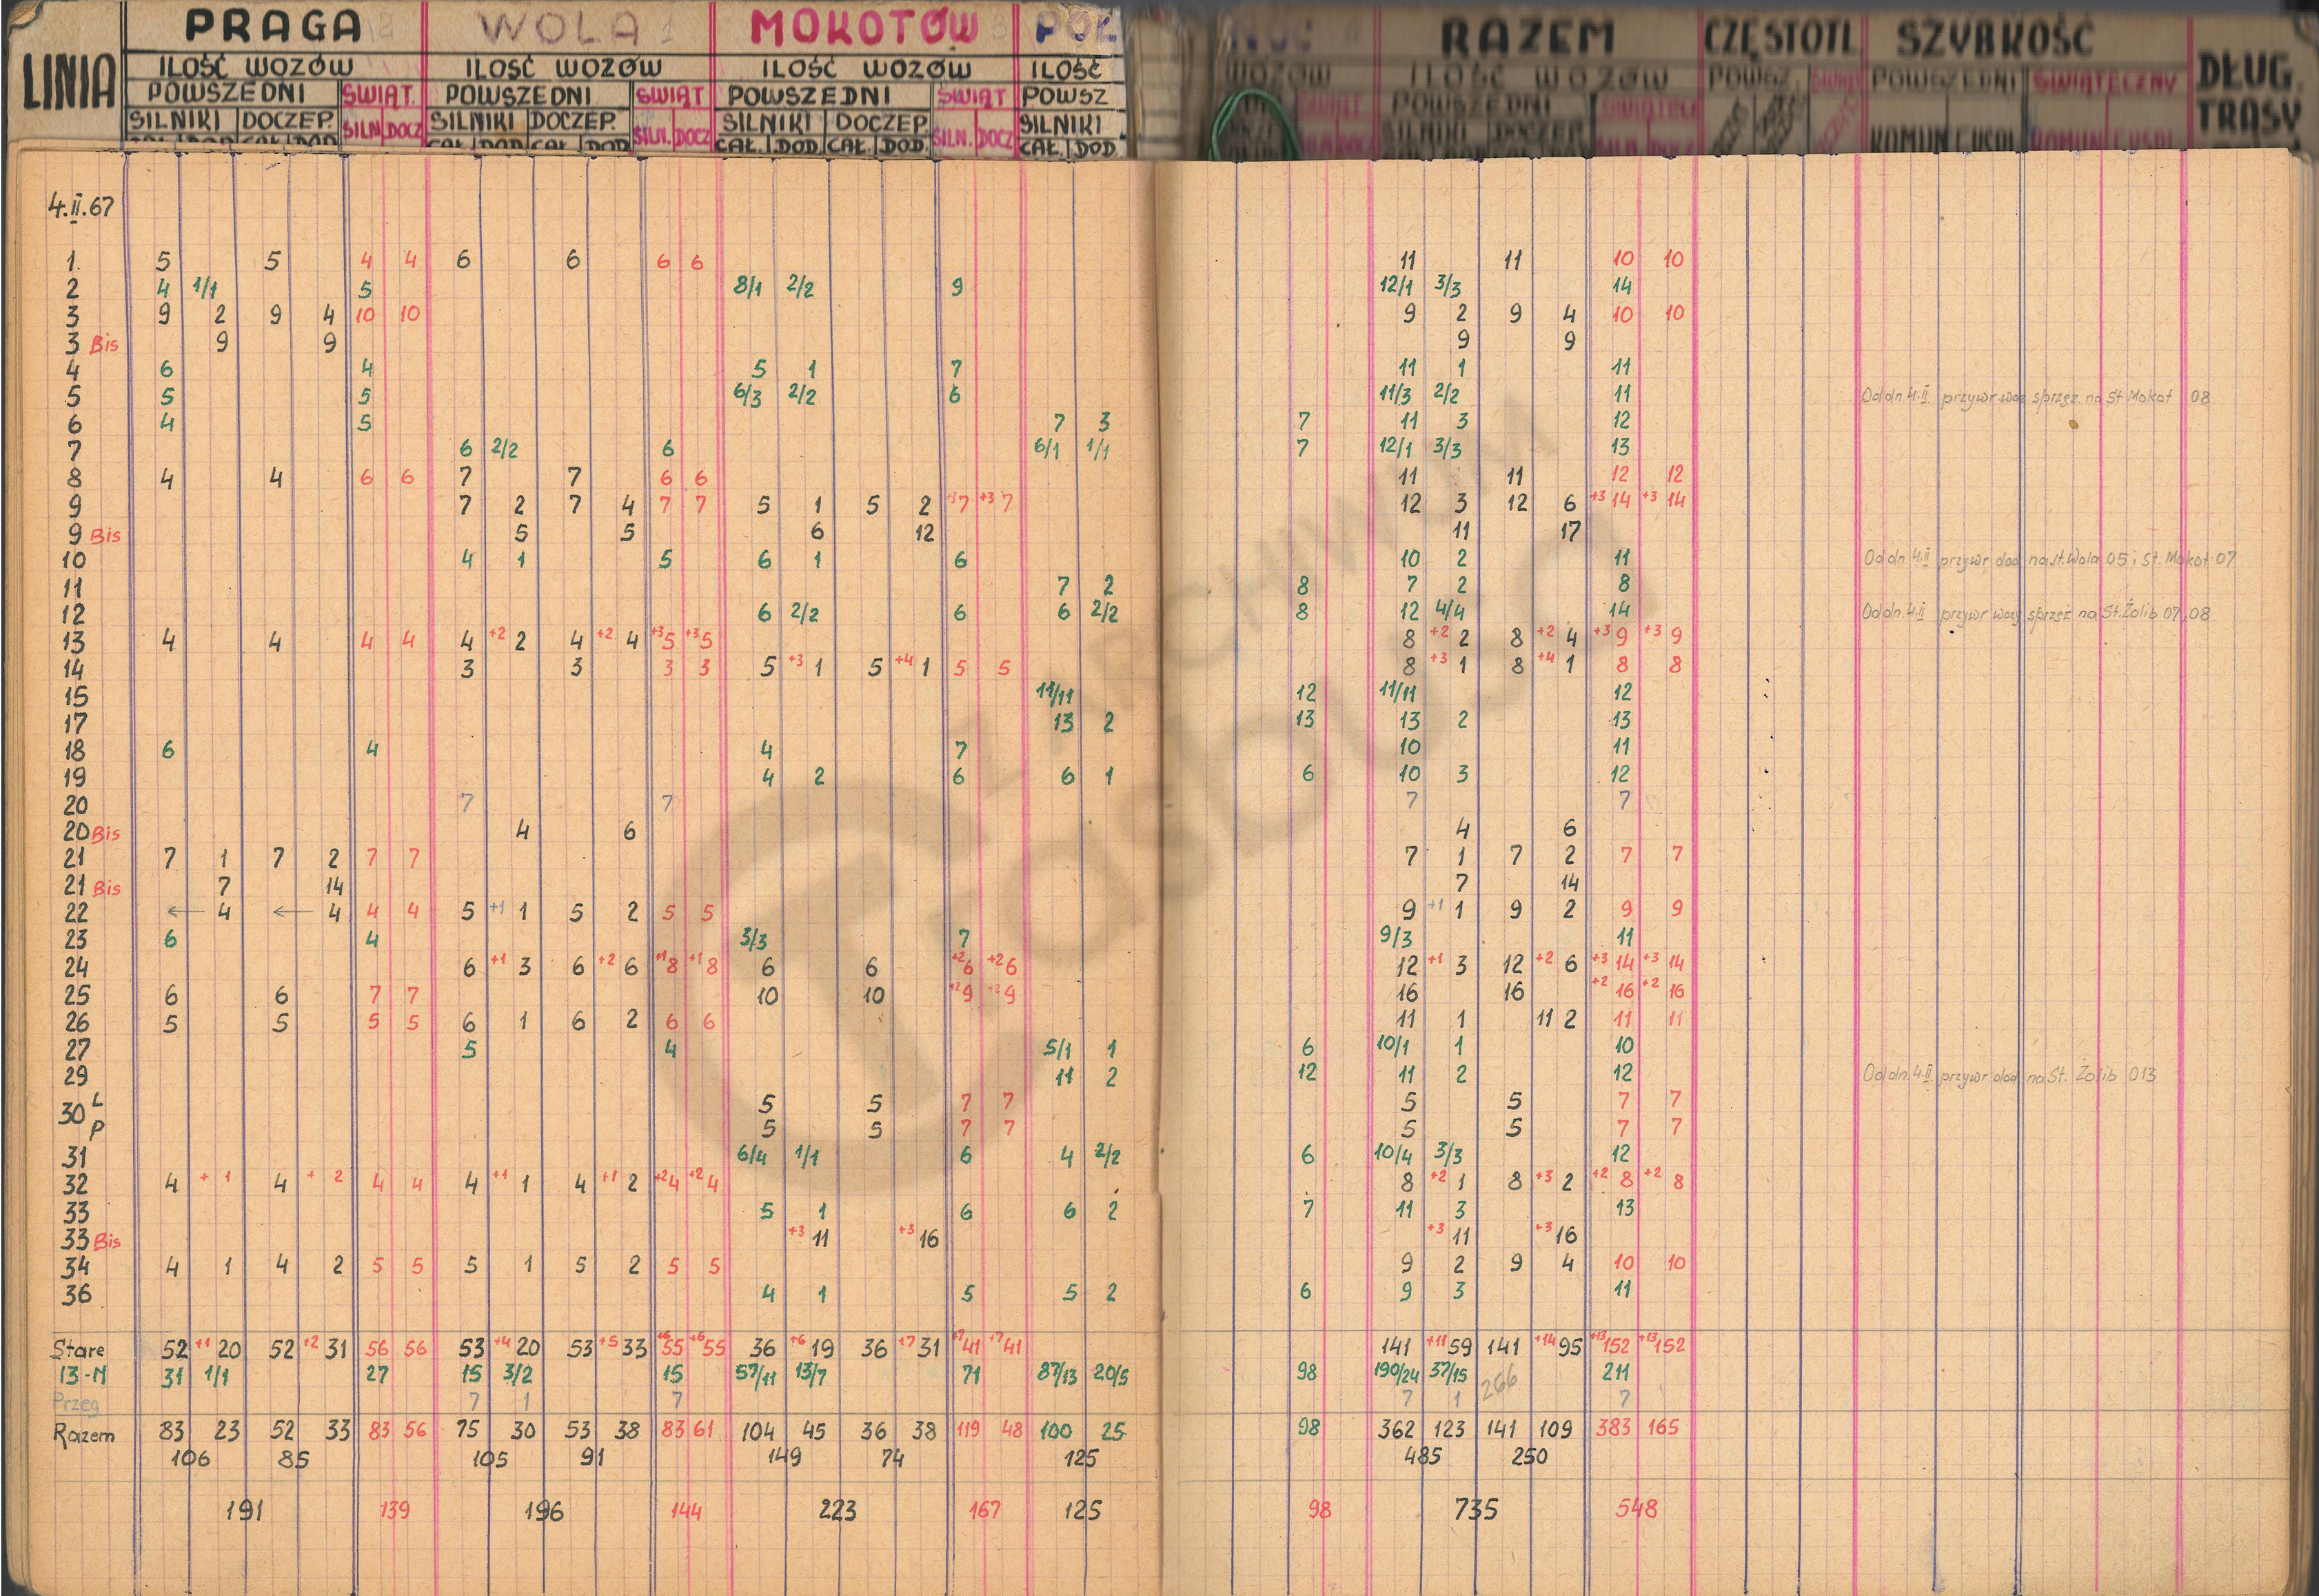 LINIA PRAGA WOLA MOKOTÓW PÓŁ NOC RAZEM CZĘSTOTL SZYBKOŚĆ DŁUG. TRASY
ILOŚĆ WOZÓW ILOŚĆ WOZÓW ILOŚĆ WOZÓW ILOŚĆ WOZÓW ILOŚĆ WOZÓW
POWSZEDNI ŚWIĄT. POWSZEDNI ŚWIĄT POWSZEDNI ŚWIĄT POWSZ ŚWIĄT POWSZEDNI POWSZ. POWSZEDNI ŚWIĄTECZNY
SILNIKI DOCZEP. SILN. DOCZ SILNIKI DOCZEP. SILN. DOCZ SILNIKI DOCZEP SILN. DOCZ SILNIKI SILNIKI DOCZEP.
CAŁ. DOD. CAŁ. DOD. CAŁ. DOD. CAŁ. DOD. CAŁ. DOD. CAŁ. DOD. CAŁ. DOD.
4.II.67
1. 5 5 4 4 6 6 6 6 11 11 10 10
2 4 1/1 5 8/1 2/2 9 12/1 3/3 14
3 9 2 9 4 10 10 9 2 9 4 10 10
3 Bis 9 9 9 9
4 6 4 5 1 7 11 1 11
5 5 5 6/3 2/2 6 11/3 2/2 11 Od dn. 4.II przywr woz sprzęż na St Mokot 08
6 4 5 7 3 7 11 3 12
7 6 2/2 6 6/1 1/1 7 12/1 3/3 13
8 4 4 6 6 7 7 6 6 11 11 12 12
9 7 2 7 4 7 7 5 1 5 2 +3 7 +3 7 12 3 12 6 +3 14 +3 14
9 Bis 5 5 6 12 11 17
10 4 1 5 6 1 6 10 2 11 Od dn. 4.II przywr dod na St. Wola 05 i St. Mokot 07
11 7 2 8 7 2 8
12 6 2/2 6 6 2/2 8 12 4/4 14 Od dn. 4.II przywr wozy sprzęż na St. Żolib 07,08
13 4 4 4 4 4 +2 2 4 +2 4 +3 5 +3 5 8 +2 2 8 +2 4 +3 9 +3 9
14 3 3 3 3 5 +3 1 5 +4 1 5 5 8 +3 1 8 +4 1 8 8
15 11/11 12 11/11 12
17 13 2 13 13 2 13
18 6 4 4 7 10 11
19 4 2 6 6 1 6 10 3 12
20 7 7 7 7
20 Bis 4 6 4 6
21 7 1 7 2 7 7 7 1 7 2 7 7
21 Bis 7 14 7 14
22 ← 4 ← 4 4 4 5 +1 1 5 2 5 5 9 +1 1 9 2 9 9
23 6 4 3/3 7 9/3 11
24 6 +1 3 6 +2 6 +1 8 +1 8 6 6 +2 6 +2 6 12 +1 3 12 +2 6 +3 14 +3 14
25 6 6 7 7 10 10 +2 9 +2 9 16 16 +2 16 +2 16
26 5 5 5 5 6 1 6 2 6 6 11 1 11 2 11 11
27 5 4 5/1 1 6 10/1 1 10
29 11 2 12 11 2 12 Od dn. 4.II przywr dod na St. Żolib 013
30 L 5 5 7 7 5 5 7 7
P 5 5 7 7 5 5 7 7
31 6/4 1/1 6 4 2/2 6 10/4 3/3 12
32 4 + 1 4 + 2 4 4 4 +1 1 4 +1 2 +2 4 +2 4 8 +2 1 8 +3 2 +2 8 +2 8
33 5 1 6 6 2 7 11 3 13
33 Bis +3 11 +3 16 +3 11 +3 16
34 4 1 4 2 5 5 5 1 5 2 5 5 9 2 9 4 10 10
36 4 1 5 5 2 6 9 3 11
Stare 52 +1 20 52 +2 31 56 56 53 +4 20 53 +5 33 +6 55 +6 55 36 +6 19 36 +7 31 +7 41 +7 41 141 +11 59 141 +14 95 +13 152 +13 152
13-N 31 1/1 27 15 3/2 15 57/11 13/7 71 87/13 20/5 98 190/24 37/15 211
Przeg 7 1 7 7 1 266 7
Razem 83 23 52 33 83 56 75 30 53 38 83 61 104 45 36 38 119 48 100 25 98 362 123 141 109 383 165
106 85 105 91 149 74 125 485 250
191 139 196 144 223 167 125 98 735 548